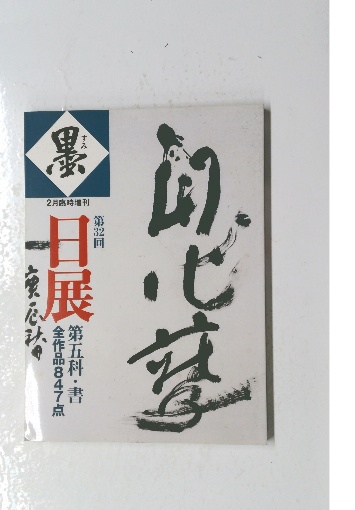 墨
すみ
2月臨時増刊
第32回
日展
第五科・書
全作品847点
庚辰秋日